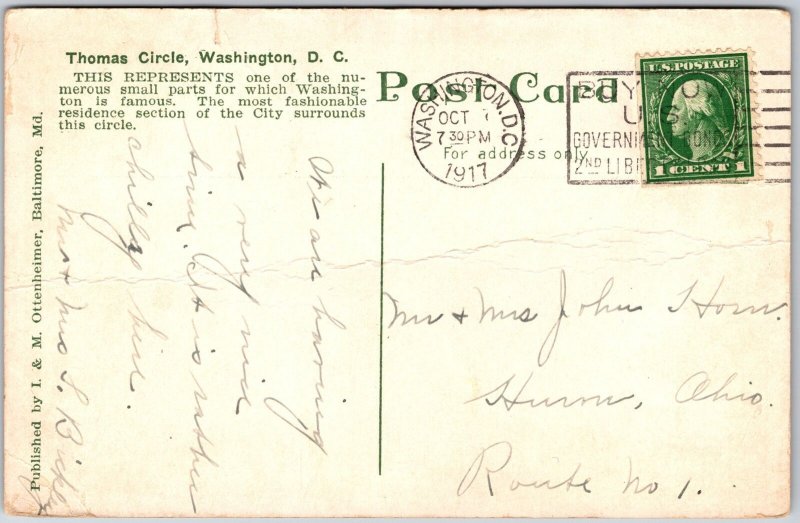 Thomas Circle, Washington, D. C.
THIS REPRESENTS one of the nu-
merous small parts for which Washing-
ton is famous. The most fashionable
residence section of the City surrounds
this circle.
Post Card
For address only.
WASHINGTON, D.C.
OCT
7 30 PM
1917
BUY
U S
GOVERNMENT BONDS
2ND LIB
U.S. POSTAGE
1 CENT 1
Published by I. & M. Ottenheimer, Baltimore, Md.
We are having
a very nice
time. It is rather
chilly here.
Mr & Mrs S.
Mr & Mrs John Horn.
Huron, Ohio.
Route No 1.